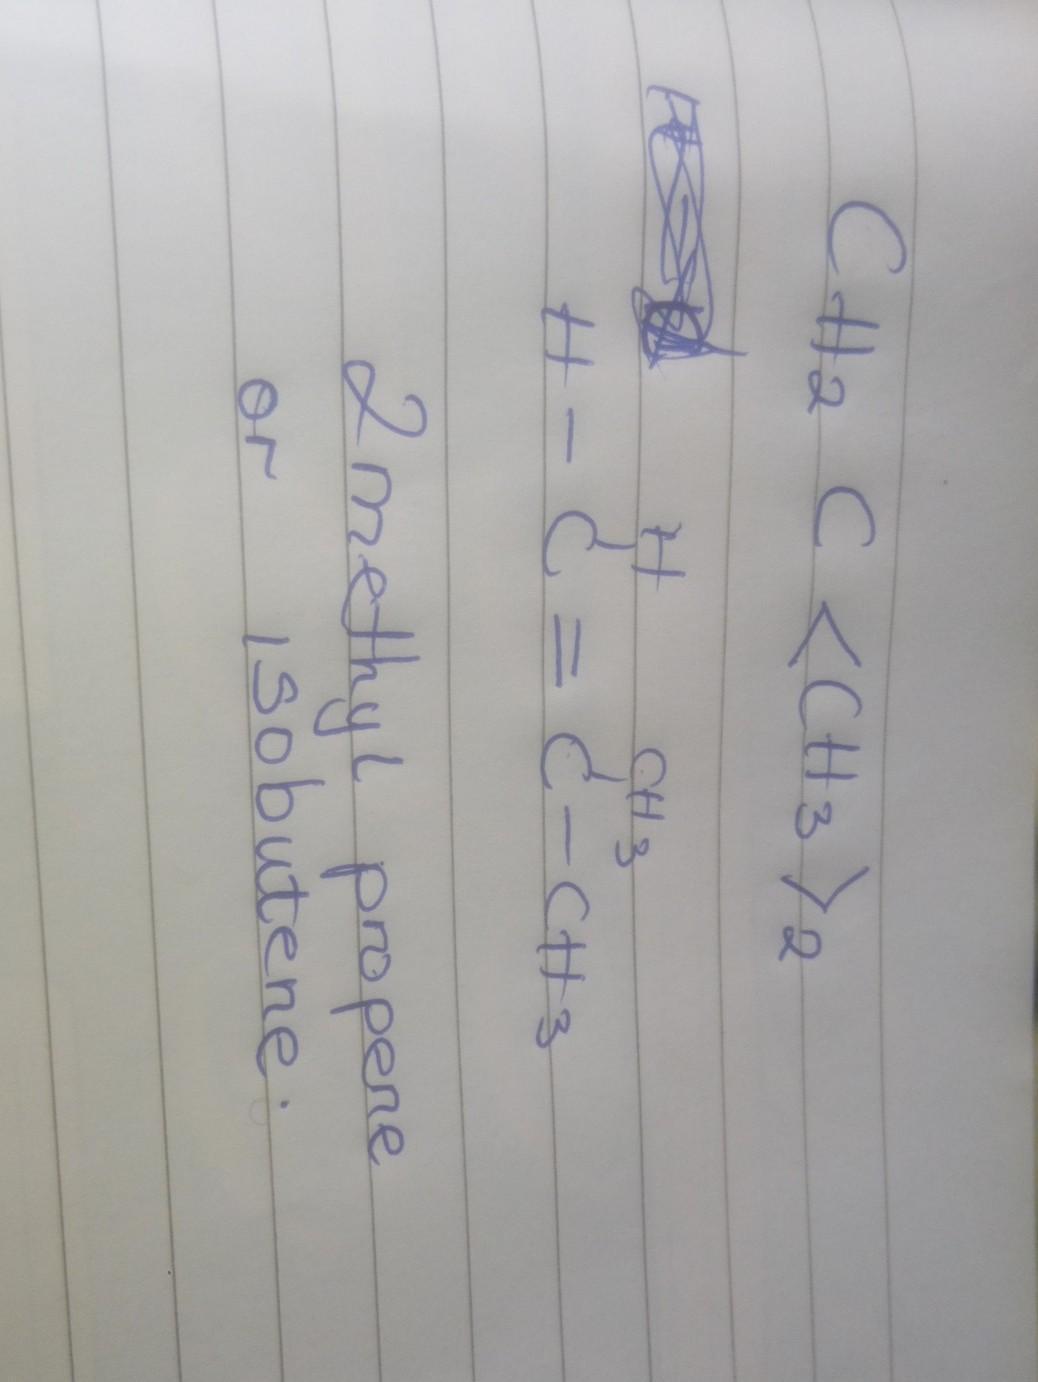 CH2 C <CH3>2
H CH3
H - C = C - CH3
2 methyl propene
or isobutene.